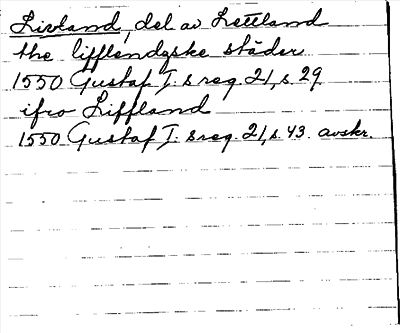 Livland, del av Lettland
the liffländske städer
1550 Gustaf I:s reg. 21, s. 29
ifrå Liffland
1550 Gustaf I:s reg. 21, s. 43. avskr.